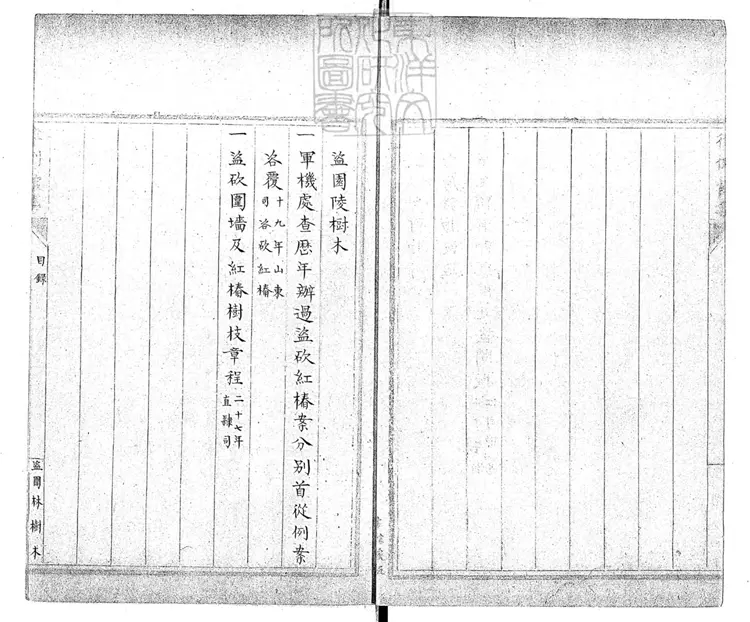 盜園陵樹木
一軍機處查歷年辦過盜砍紅樁案分別首從例案
咨覆十九年山東
司咨砍紅樁
一盜砍圍墻及紅樁樹枝章程二十七年
直隸司
目錄
盜園林樹木
東洋文
化研究
所圖書